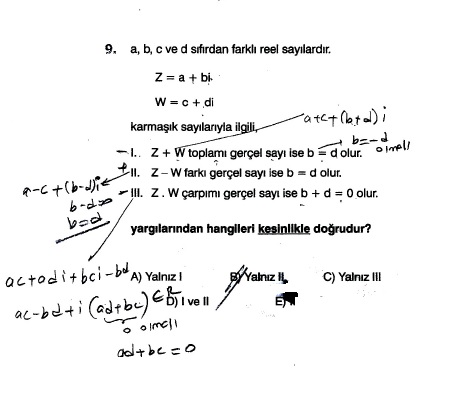 9. a, b, c ve d sıfırdan farklı reel sayılardır.
Z = a + bi
W = c + di
karmaşık sayılarıyla ilgili,
a+c+(b+d)i
b=-d olmalı
I. Z + W toplamı gerçel sayı ise b = d olur.
II. Z – W farkı gerçel sayı ise b = d olur.
III. Z . W çarpımı gerçel sayı ise b + d = 0 olur.
a-c+(b-d)i
b-d=0
b=d
yargılarından hangileri kesinlikle doğrudur?
A) Yalnız I B) Yalnız II C) Yalnız III
D) I ve II E)
ac+adi+bci-bd
ac-bd+i(ad+bc)∈R
0 olmalı
ad+bc=0